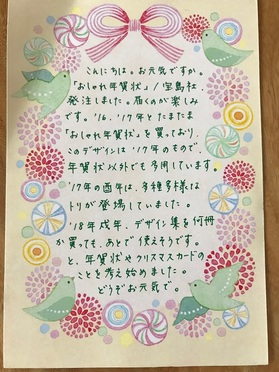 こんにちは。お元気ですか。
「おしゃれ年賀状」/宝島社、
発注しました。届くのが楽しみ
です。'16、'17年とたまたま
「おしゃれ年賀状」を買っており、
このデザインは'17年のもので、
年賀状以外でも多用しています。
'17年の酉年は、多種多様な
トリが登場していました。
'18年戌年、デザイン集を何冊
か買っても、あとで使えそうです。
と、年賀状やクリスマスカードの
ことを考え始めました。
どうぞお元気で。